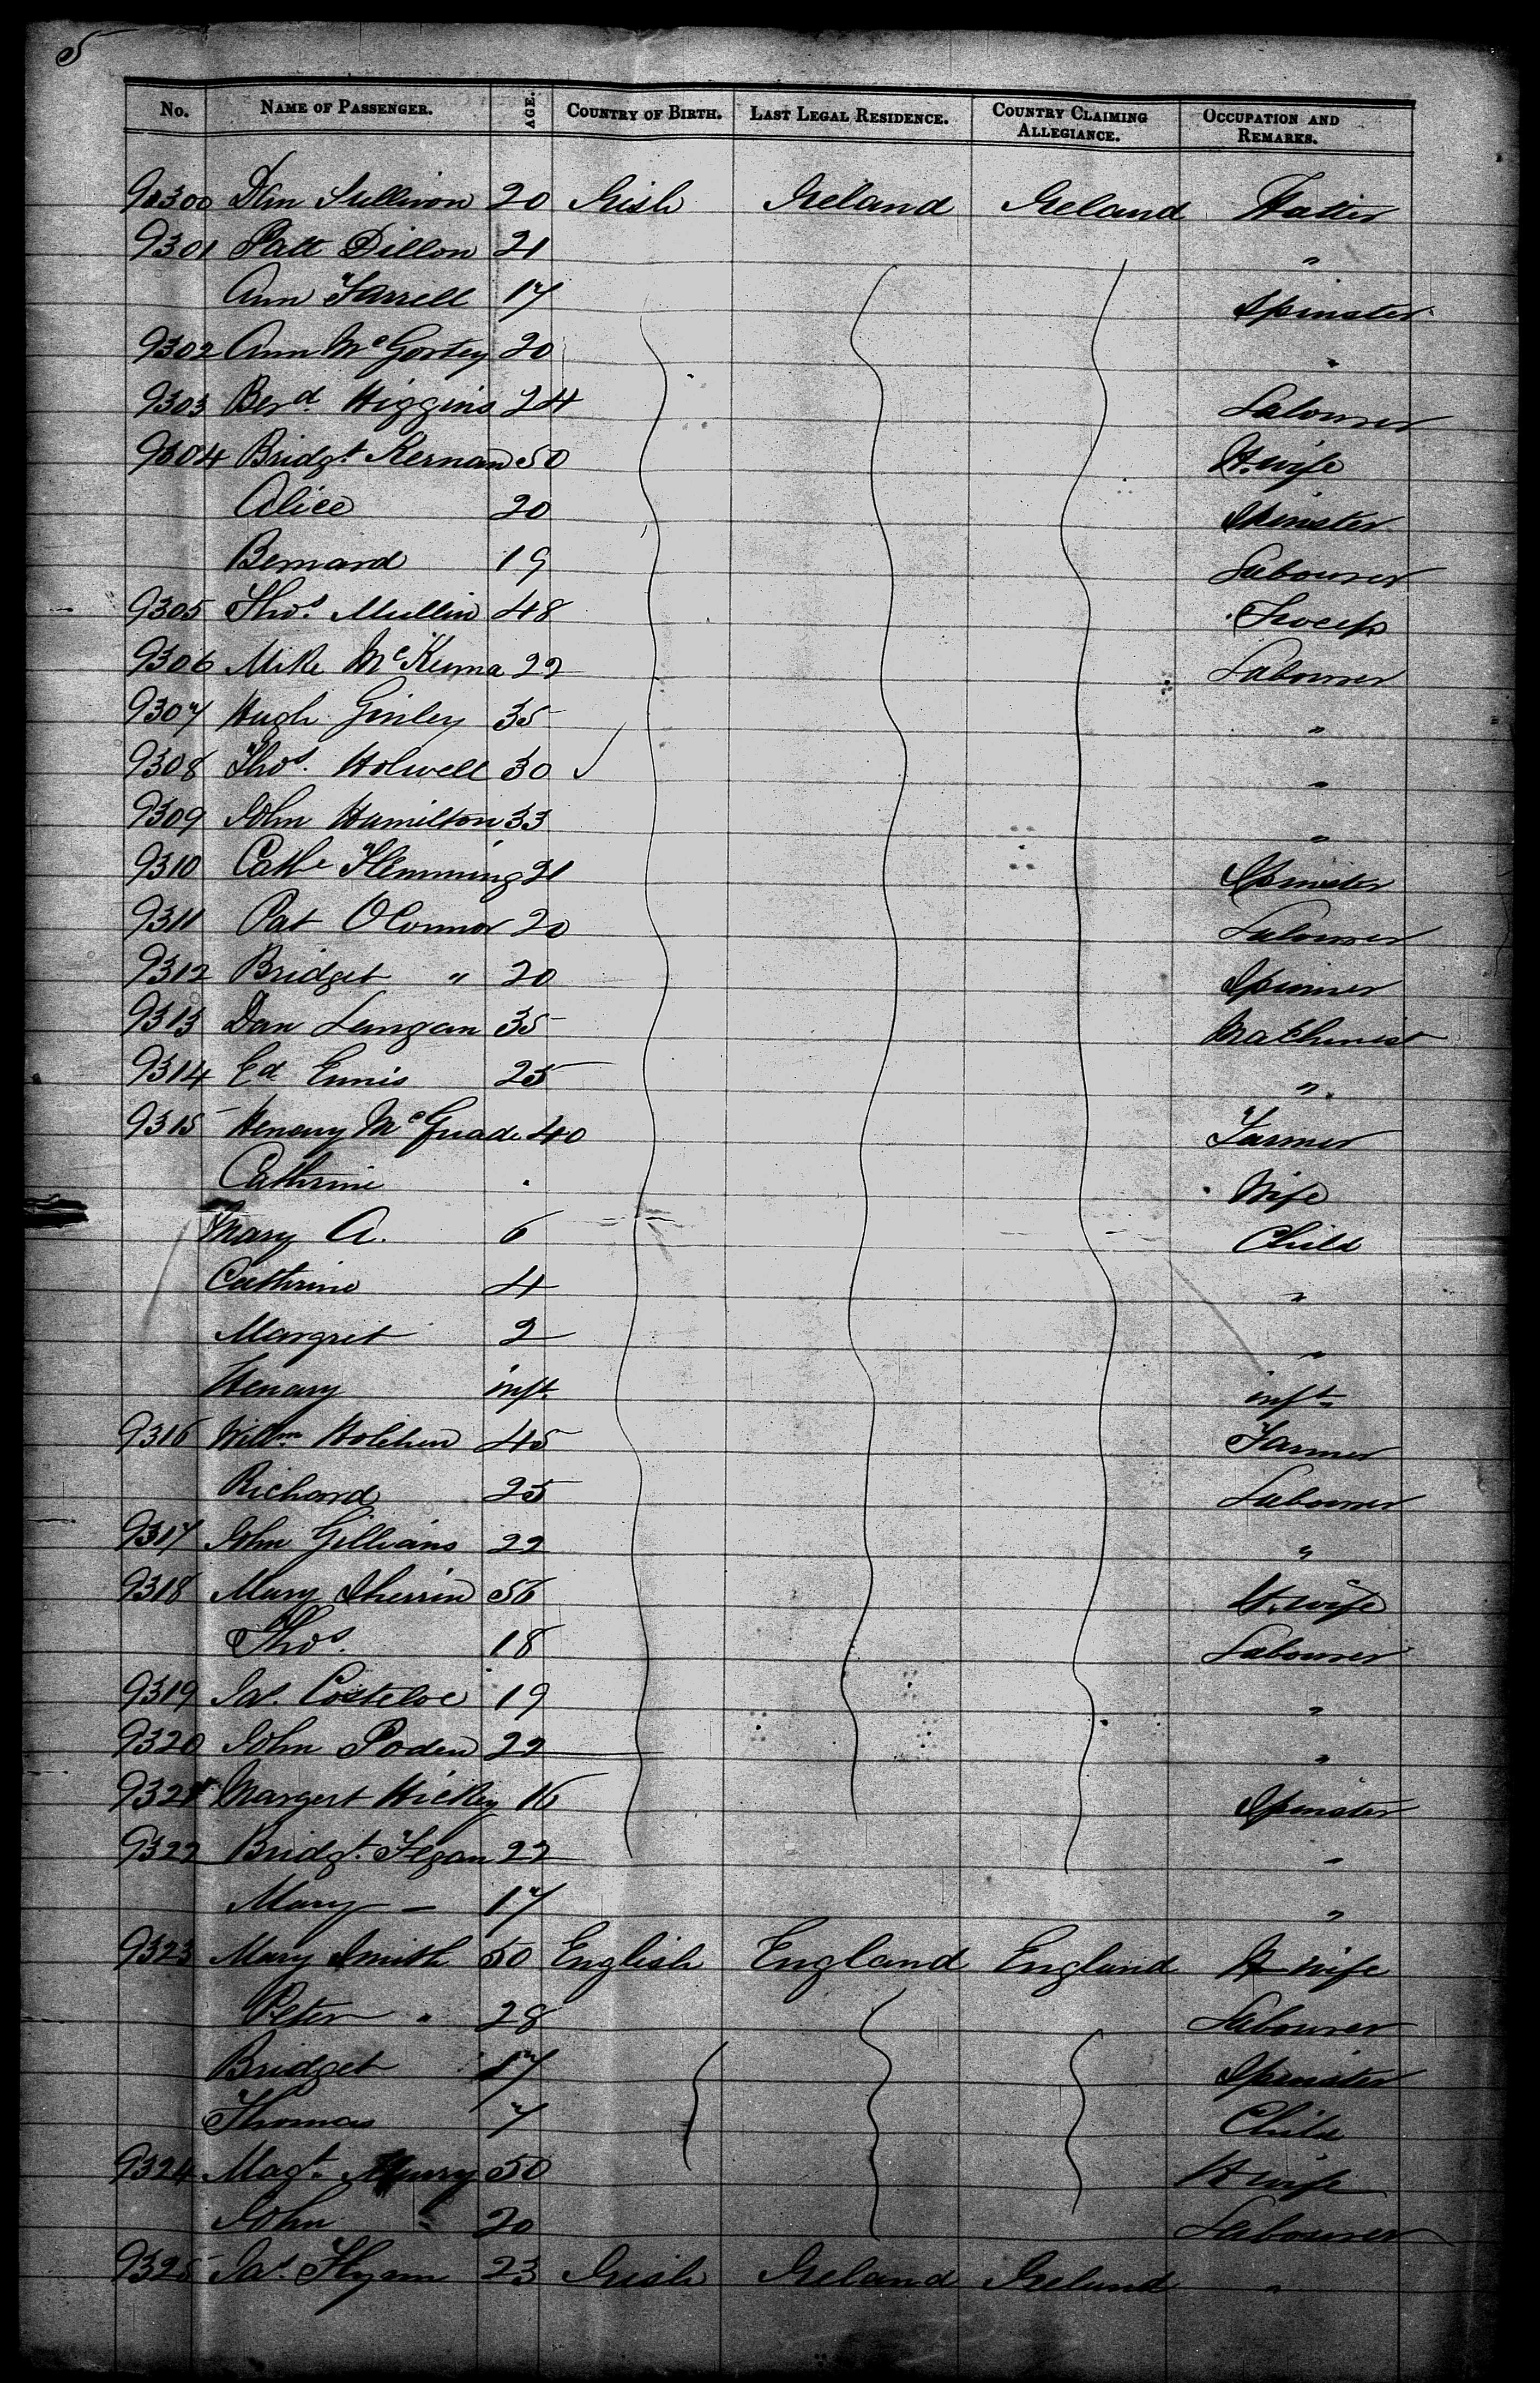 5
No. NAME OF PASSENGER. AGE. COUNTRY OF BIRTH. LAST LEGAL RESIDENCE. COUNTRY CLAIMING ALLEGIANCE. OCCUPATION AND REMARKS.
9300 Dan Sullivan 20 Irish Ireland Ireland Hatter
9301 Patt Dillon 21 "
Ann Farrell 17 Spinster
9302 Ann McGortey 20 "
9303 Berd. Higgins 24 Labourer
9304 Bridgt Kernan 50 H. wife
Alice 20 Spinster
Bernard 19 Labourer
9305 Thos. Mullin 48
9306 Mike McKenna 22 Labourer
9307 Hugh Ginley 35 "
9308 Thos. Holwell 30 "
9309 John Hamilton 33 "
9310 Cathe Flemming 21 Spinster
9311 Pat OConnor 20 Labourer
9312 Bridget " 20 Spinner
9313 Dan Langan 35 Machinist
9314 Ed Ennis 25 "
9315 Henery McGuade 40 Farmer
Cathrine Wife
Mary A. 6 Child
Cathrine 4 "
Margret 2 "
Henary inft. inft.
9316 Willm. 45 Farmer
Richard 25 Labourer
9317 John Gillians 22 "
9318 Mary Sherrin 56 H. wife
Thos. 18 Labourer
9319 Jas. Costeloe 19 "
9320 John Poden 22 "
9321 Margert Hickey 16 Spinster
9322 Bridgt. Fegan 22 "
Mary 17 "
9323 Mary Smith 50 English England England H wife
Peter " 28 Labourer
Bridget 17 Spinster
Thomas 7 Child
9324 Magt. Murry 50 H wife
John " 20 Labourer
9325 Jas. Flynn 23 Irish Ireland Ireland "